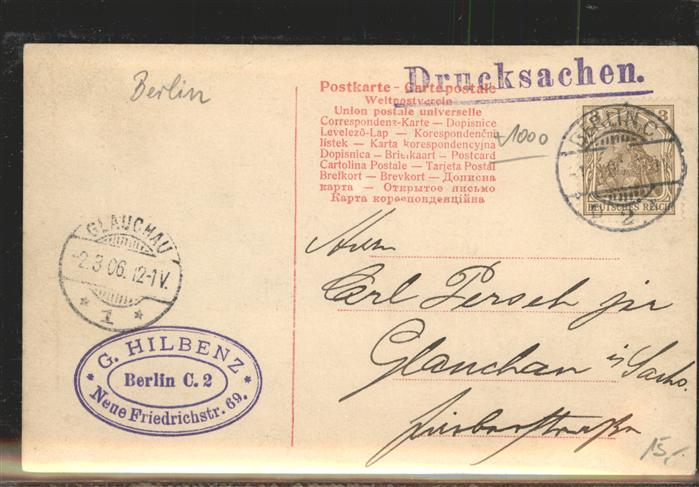 Berlin
Drucksachen.
Postkarte - Cartepostale
Weltpostverein
Union postale universelle
Correspondenz-Karte — Dopisnice
Levelező-Lap — Korespondenční
listek — Karta korespondencyjna
Dopisnica — Briefkaart — Postcard
Cartolina Postale — Tarjeta Postal
Brefkort — Brevkort — Дописна
карта — Открытое письмо
Карта кореспонденційна
1000
BERLIN C.
2
3
DEUTSCHES REICH
GLAUCHAU
-2.3.06.12-1V.
* 1 *
G. HILBENZ
Berlin C. 2
* Neue Friedrichstr. 69. *
Herrn
Carl Persch jr
Glauchau i/ Sachs.
15,-